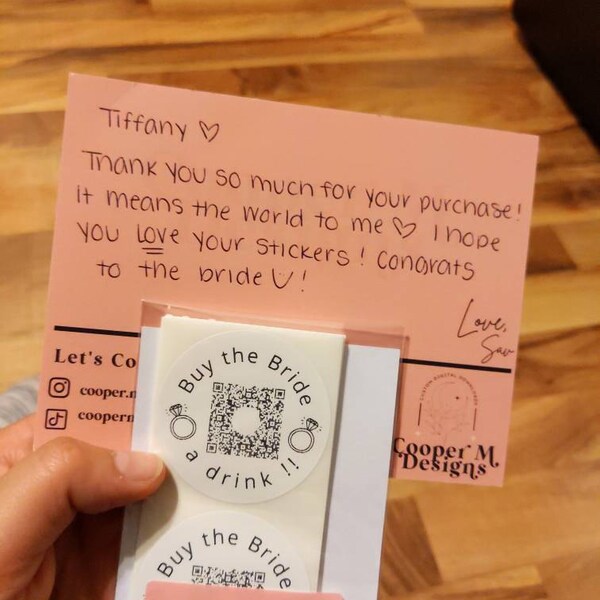 Tiffany ♡
Thank you so much for your purchase!
it means the world to me ♡ I hope
you love your stickers! Congrats
to the bride ♡!
Love,
Sav
Let's Co
cooper.
cooperm
Cooper M
Designs
Buy the Bride
a drink !!
Buy the Bride